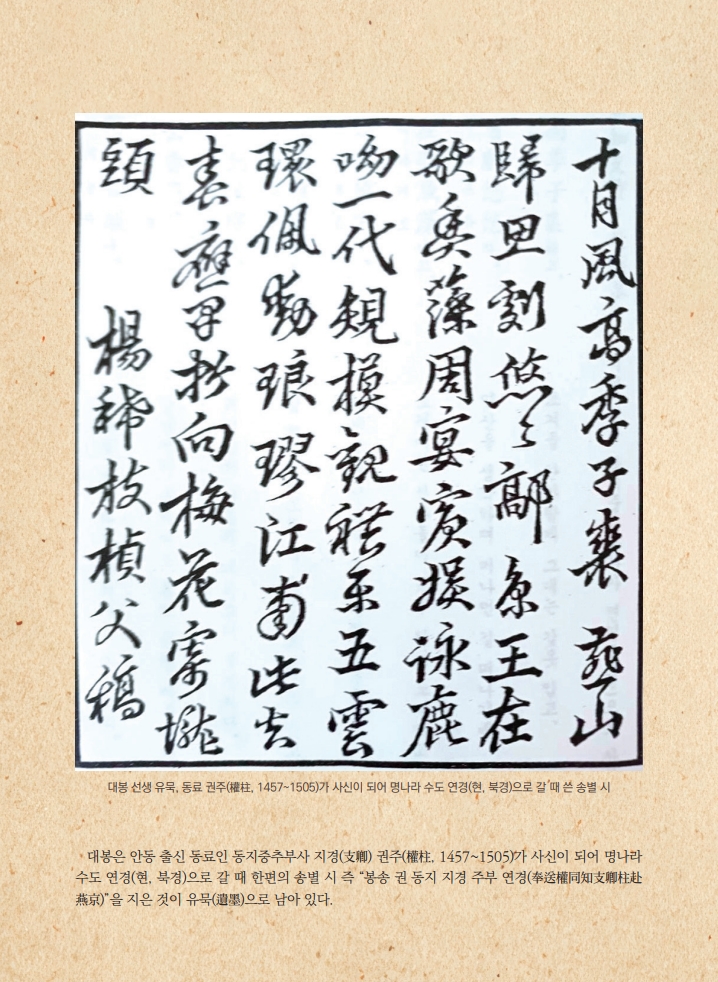 十月風高季子裘燕山
歸思劇悠〻鄗京王在
歌魚藻周宴賓娛詠鹿
呦一代規模觀禮樂五雲
環佩動琅璆江南此去
春應早折向梅花寄壠
頭 楊稀枝楨父稿
대봉 선생 유묵, 동료 권주(權柱, 1457~1505)가 사신이 되어 명나라 수도 연경(현, 북경)으로 갈 때 쓴 송별 시
대봉은 안동 출신 동료인 동지중추부사 지경(支卿) 권주(權柱, 1457~1505)가 사신이 되어 명나라
수도 연경(현, 북경)으로 갈 때 한편의 송별 시 즉 “봉송 권 동지 지경 주부 연경(奉送權同知支卿柱赴
燕京)”을 지은 것이 유묵(遺墨)으로 남아 있다.